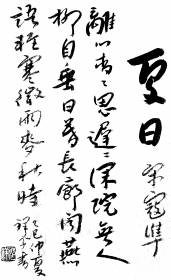 夏日 宋寇準
離心杳々思遲々深院無人
柳自垂日暮長廊聞燕
語輕寒微雨麥秋時
乙巳仲夏
書